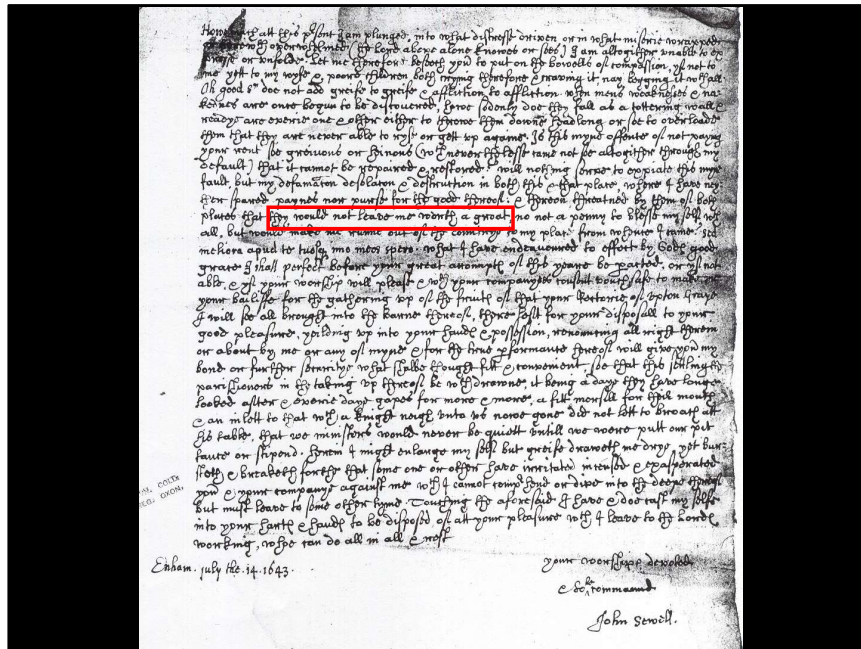 How much att this psent I am plunged, into what distresse driven or in what miserie wrapped
overwhelmed (the Lord above alone knowes or sees) I am altogither unable to ex
presse or unfolde. Let me therefore beseech you to put on the bowells of compassion, yf not to
me yett to my wyfe & poore children both crying therefore & craving it, nay begging it withall
Oh good sr doe not add greife to greife & affliction to affliction when mens weaknesses & na
kednes are once begun to be discouered, howe sodenly doe they fall as a tottering wall &
readye are everie one & other either to throwe them downe headlong or soe to overloade
them that they are never able to ryse or gett up againe. Is this myne offence of not paying
your rent soe greivous or hinous (wch neverthelesse came not soe altogither through my
default) that it cannot be repaired & restored? will nothing serve to expiate this my
fault, but my defamation desolation & destruction in both this & that place, where I have ney
ther spared paynes nor purse for the good thereof: & thereon threatned by them of both
places that they would not leave me worth a groat, no not a penny to blesse my self with
all, but would make me runne out of the countrye to my place from whence I came: sed
meliora apud te spero. what I have endeavoured to effect by Gods good
grace I shall perfect before your great attempts of this yeare be parted, or yf not
able, & yf your worship will please & wth your companyes consent vouchsafe to make
your bailife for the gathering up of the fruits of that your Rectorie of Upton Graye
I will see all brought into the barne thereof, there lost for your disposall to your
good pleasure, yeilding up into your hands & possession, renouncing all right therein
or about by me or any of myne & for the true pformance thereof will give you my
bond or further securitye what shalbe thought fitt & convenient, soe that this
parishioners in the taking up thereof be wthdrawne, it being a daye they have longe
looked after & everie daye gopes for more & more, a fitt morsell for their mouth
& an inlett to that wch a knight neigh unto us nowe gone did not lett to broach att
his table, that we ministers would never be quiett untill we were putt our pit
tance or stipend. herein I might enlarge my self but greife draweth me drye, yet bur
steth & breaketh forthe that some one or other have irritated incensed & exasperated
you & your companye against me wch I cannot comprehend or dive into the deepe thereof
but must leave to some other tyme. Touching the aforesaid I have & doe cast my selfe
into your hart & hands to be disposed of att your pleasure wch I leave to the Lords
working, whoe can do all in all & rest
your worships devoted
Enham. july the .14. 1643.
& to be commaund
John Sewell.